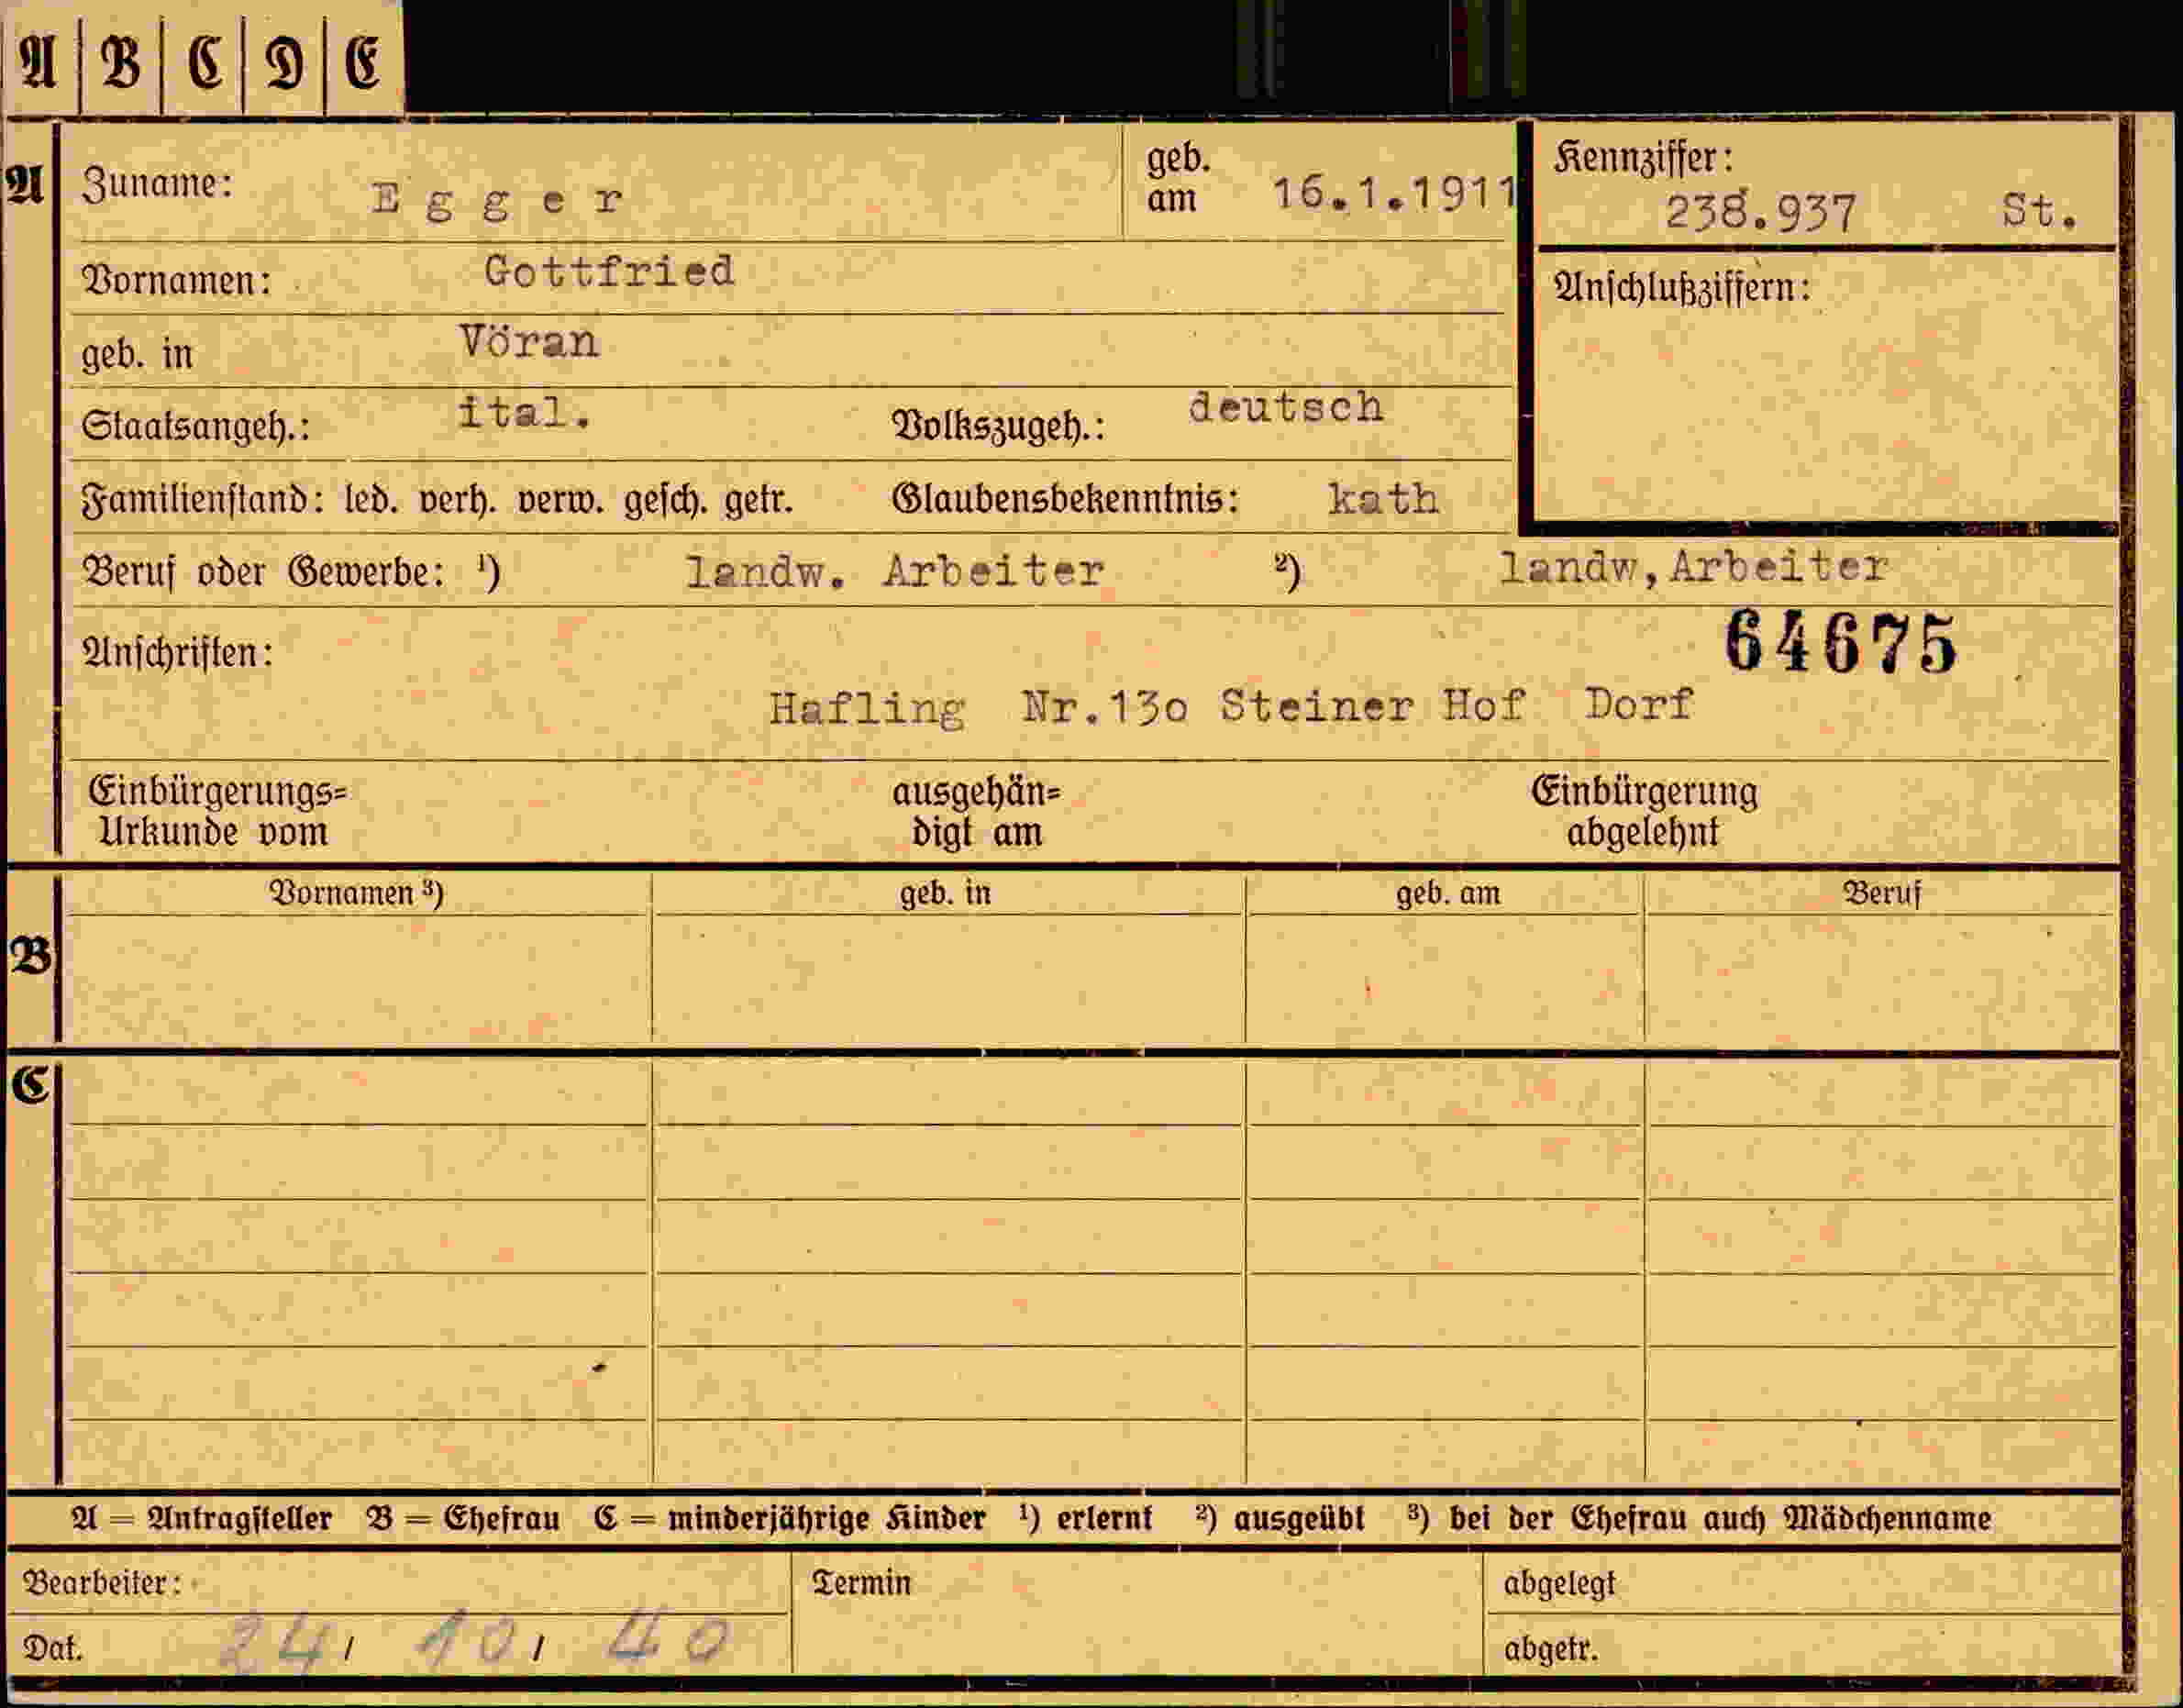 A B C D E
A Zuname: Egger geb. am 16.1.1911 Kennziffer: 238.937 St.
Vornamen: Gottfried Anschlußziffern:
geb. in Vöran
Staatsangeh.: ital. Volkszugeh.: deutsch
Familienstand: led. verh. verw. gesch. getr. Glaubensbekenntnis: kath
Beruf oder Gewerbe: ¹) landw. Arbeiter ²) landw, Arbeiter
Anschriften: 64675
Hafling Nr.13o Steiner Hof Dorf
Einbürgerungs= ausgehän= Einbürgerung
Urkunde vom digt am abgelehnt
Vornamen ³) geb. in geb. am Beruf
B
C
A = Antragsteller B = Ehefrau C = minderjährige Kinder ¹) erlernt ²) ausgeübt ³) bei der Ehefrau auch Mädchenname
Bearbeiter: Termin abgelegt
Dat. 24/ 10/ 40 abgetr.